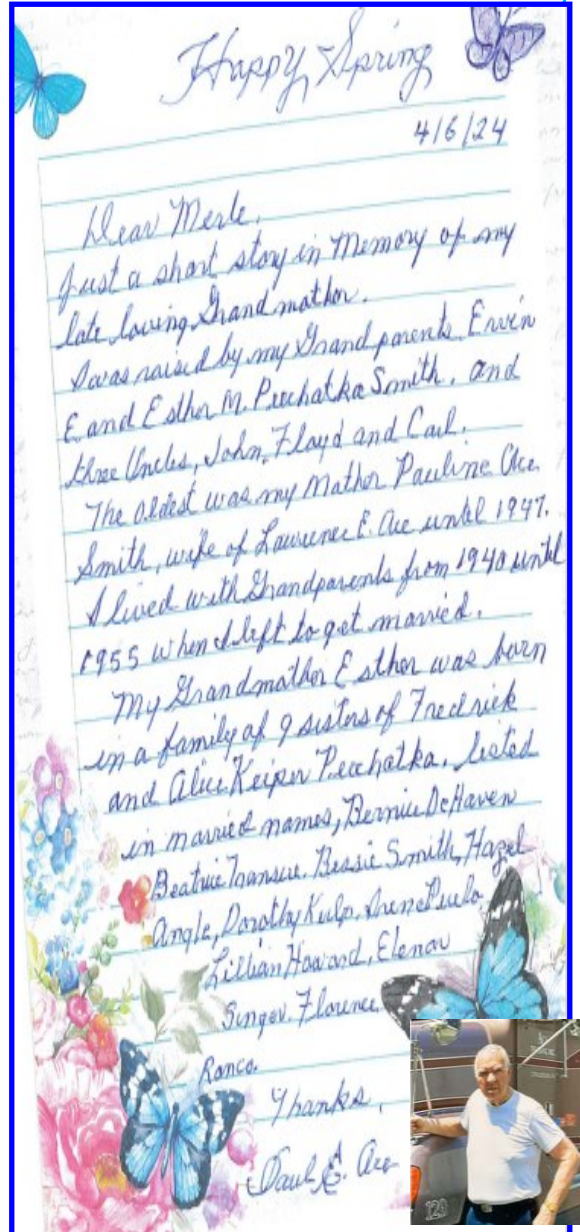 Happy Spring
4/6/24
Dear Merle,
Just a short story in Memory of my
late loving Grandmother.
I was raised by my Grandparents Ervin
E. and Esther M. Pechatka Smith, and
three Uncles, John, Floyd and Carl.
The oldest was my Mother Pauline Ace
Smith, wife of Lawrence E. Ace until 1947.
I lived with Grandparents from 1940 until
1955 when I left to get married.
My Grandmother Esther was born
in a family of 9 sisters of Fredrick
and Alice Keiper Pechatka, listed
in married names, Bernice DeHaven
Beatrice Transue. Bessie Smith, Hazel
Angle, Dorothy Kulp, Irene
Lillian Howard, Elenor
Singer. Florence
Ronco.
Thanks,
Paul Ace
129